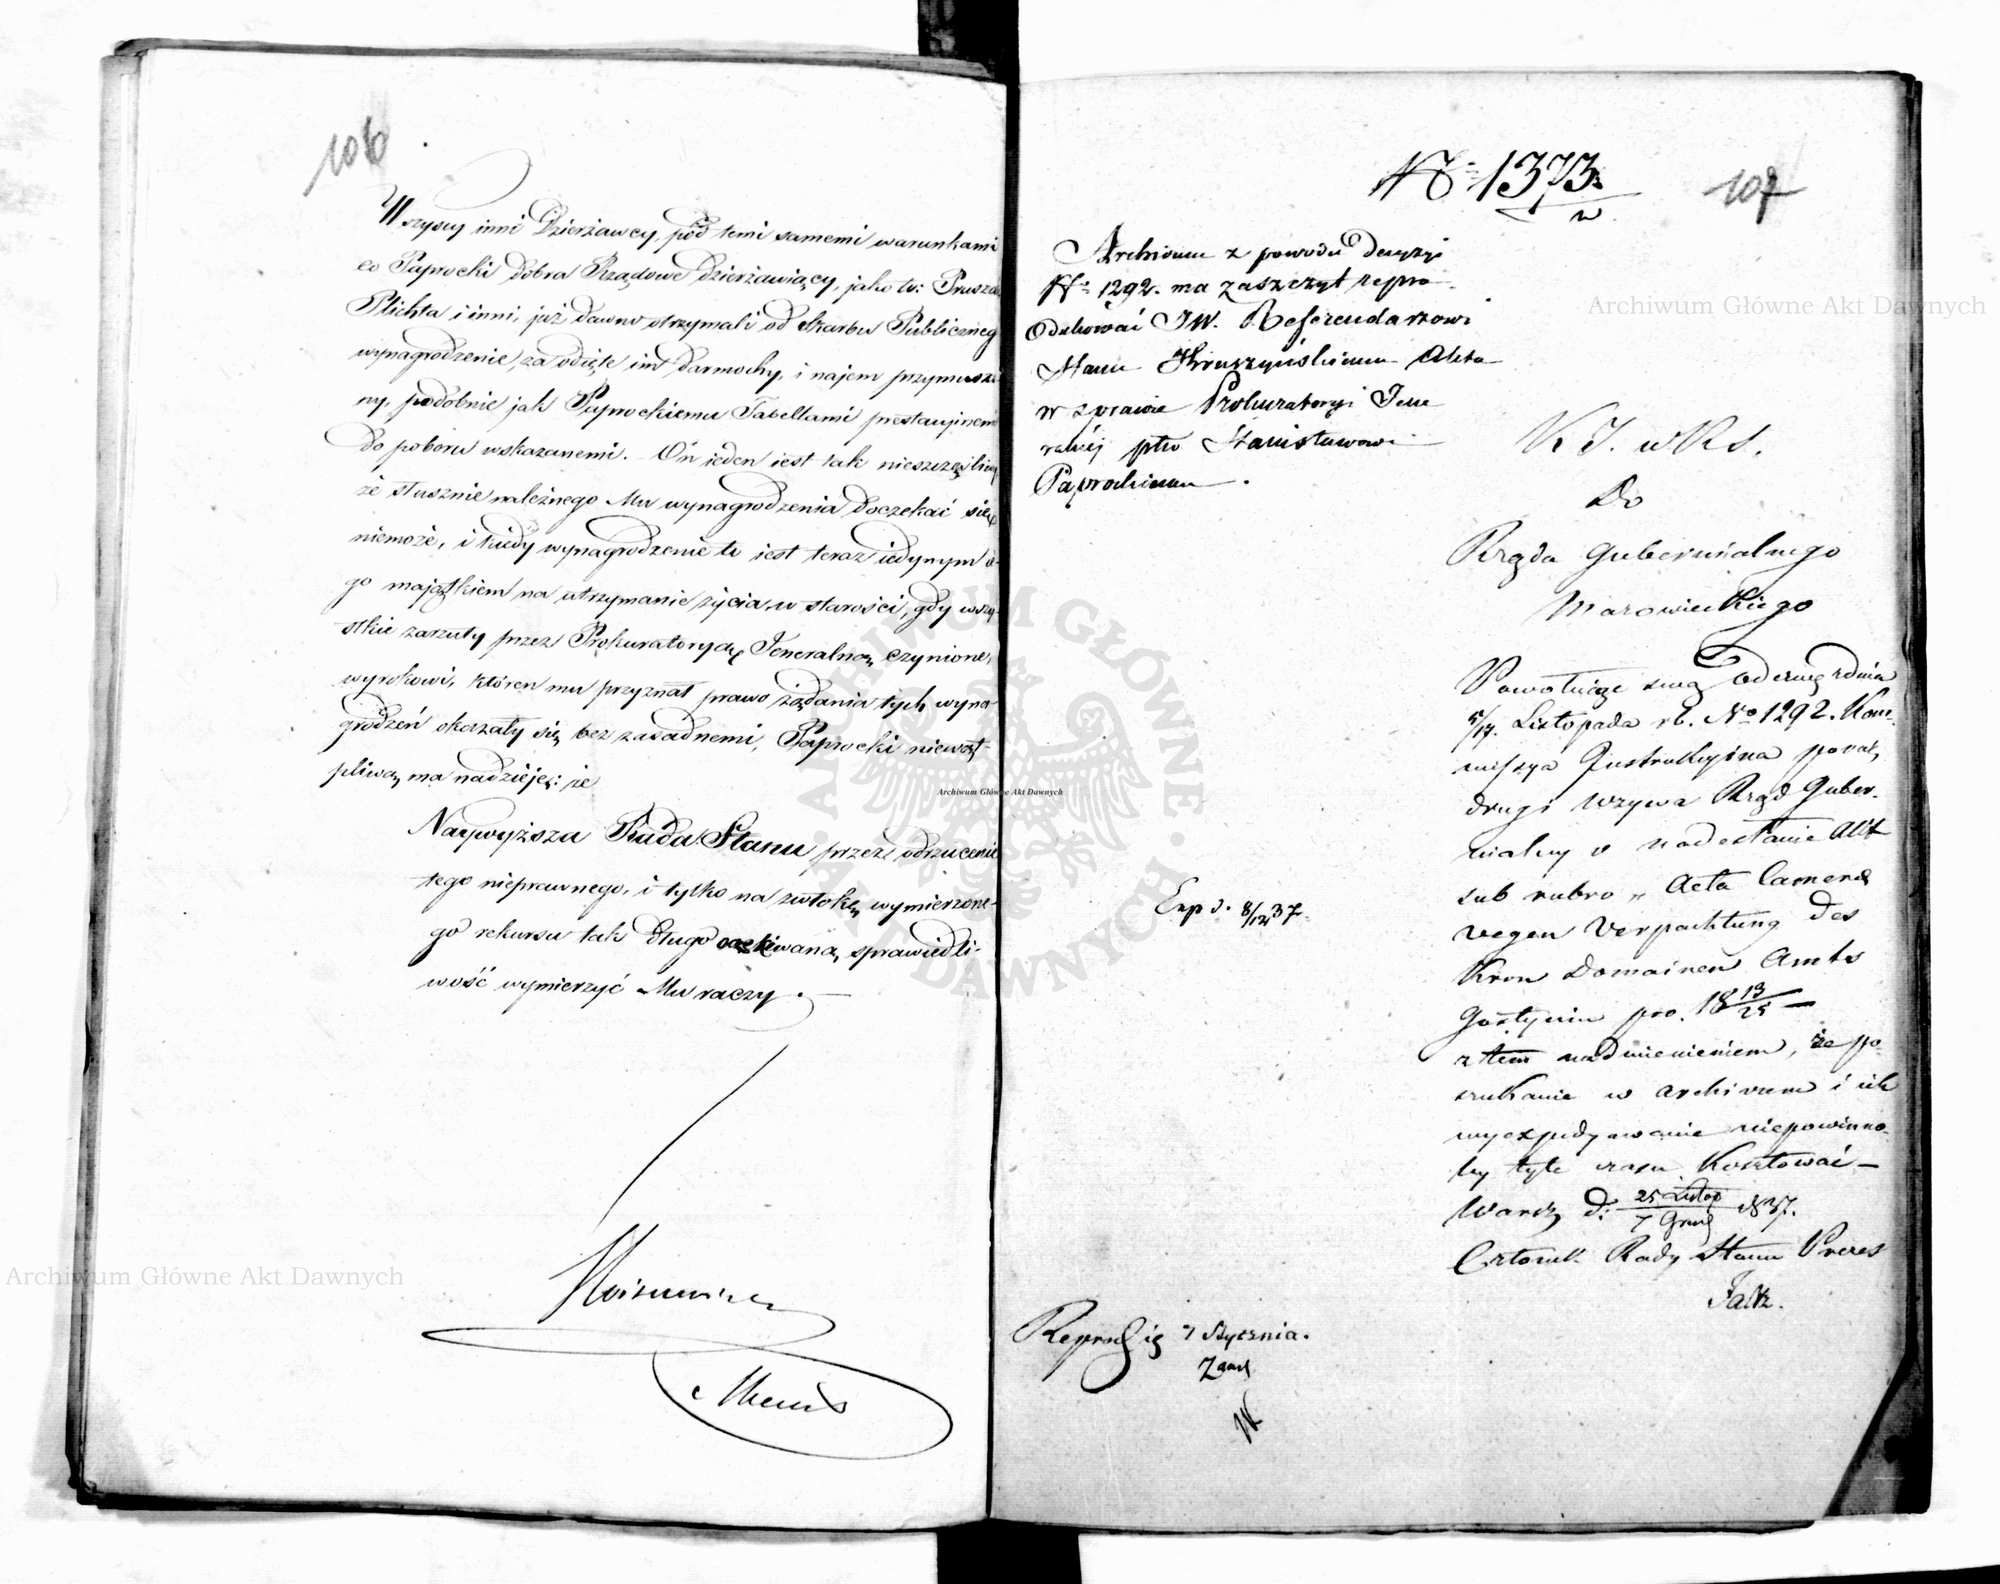 106
Wszyscy inni Dzierżawcy, pod temi samemi warunkami
co Paprocki dobra Rządowe dzierżawiący, jako to: Prusza
Plichta i inni, już dawno otrzymali od Skarbu Publiczneg
wynagrodzenie, za odjęte im darmochy, i najem przymuszo
ny, podobnie jak Paprockiemu Tabellami prestacyjnemi
do poboru wskazanemi. On jeden jest tak nieszczęśliwy
że słusznie należnego Mu wynagrodzenia doczekać się
niemoże, i kiedy wynagrodzenie to jest teraz jedynym
go majątkiem na utrzymanie życia w starości, gdy wszy-
stkie zarzuty przez Prokuratoryą Jeneralną czynione,
wyrokowi, któren mu przyznał prawo żądania tych wyna-
grodzeń okazały się bez zasadnemi, Paprocki niewąt-
pliwą ma nadzieję: że
Naywyższa Rada Stanu przez odrzucenie
tego nieprawnego, i tylko na zwłokę wymierzone-
go rekursu tak długo oczekiwaną sprawiedli-
wość wymierzyć Mu raczy.
No 1373.
107
Archiwum z powodu decyzyi
No 1292. ma zaszczyt repro-
dukować JW. Referendarzowi
Stanu Kruszyńskiemu Akta
w sprawie Prokuratoryi Jene
ralnéj ptko Stanisławowi
Paprockiemu.
Exp d. 8/12 37.
Reprod się 7 Stycznia.
K J. w KS.
Do
Rządu Gubernialnego
Mazowieckiego
Powołując swą Odezwę z dnia
5/17. Listopada rb. No 1292. Kom-
missya Instrukcyina poraz
drugi wzywa Rząd Guber-
nialny o nadesłanie Akt
sub rubro „ Acta Camerae
wegen Verpachtung des
Kron Domainen Amts
Gostynin pro. 18 19/25
z tem nadmienieniem, że po-
szukanie w archiwum i ich
wyexpedyowanie niepowinno-
by tyle czasu kosztować —
Warsz. d: 25 Listop / 7 Grud 1837.
Członek Rady Stanu Prezes
Falz.
Archiwum Główne Akt Dawnych
Archiwum Główne Akt Dawnych
Archiwum Główne Akt Dawnych
ARCHIWUM GŁÓWNE · AKT DAWNYCH ·